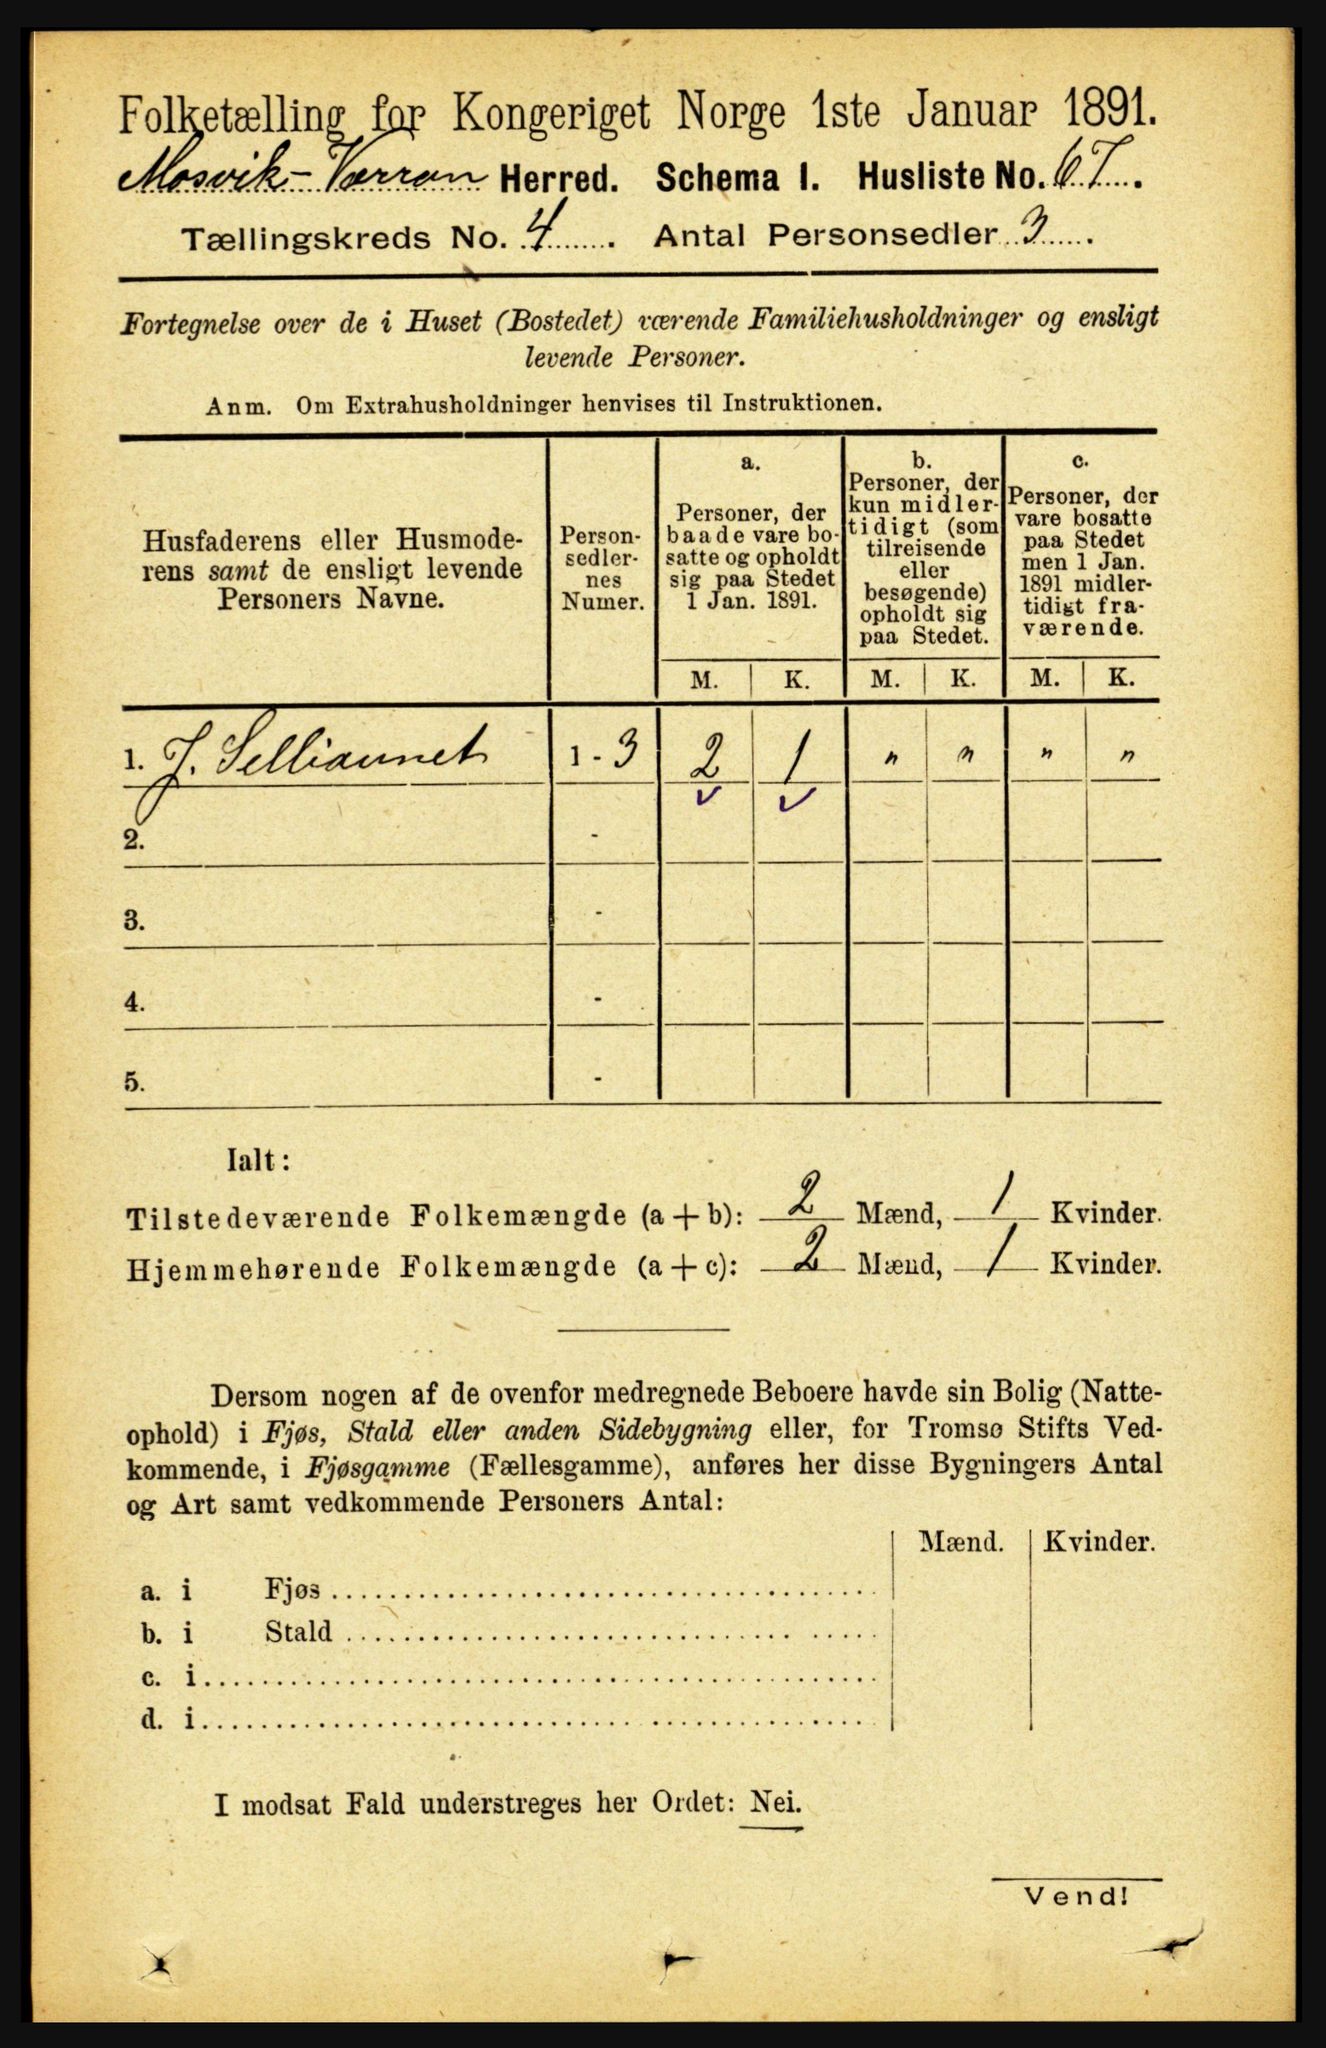 Folketælling for Kongeriget Norge 1ste Januar 1891.
Mosvik-Værran Herred. Schema I. Husliste No. 67.
Tællingskreds No. 4. Antal Personsedler 3.
Fortegnelse over de i Huset (Bostedet) værende Familiehusholdninger og ensligt
levende Personer.
Anm. Om Extrahusholdninger henvises til Instruktionen.
Husfaderens eller Husmode-
rens samt de ensligt levende
Personers Navne.
Person-
sedler-
nes
Numer.
a.
Personer, der
baade vare bo-
satte og opholdt
sig paa Stedet
1 Jan. 1891.
b.
Personer, der
kun midler-
tidigt (som
tilreisende
eller
besøgende)
opholdt sig
paa Stedet.
c.
Personer, der
vare bosatte
paa Stedet
men 1 Jan.
1891 midler-
tidigt fra-
værende.
M. K. M. K. M. K.
1. J. Selliaunet 1 - 3 2 1 " " " "
2. -
3. -
4. -
5. -
Ialt:
Tilstedeværende Folkemængde (a + b): 2 Mænd, 1 Kvinder.
Hjemmehørende Folkemængde (a + c): 2 Mænd, 1 Kvinder.
Dersom nogen af de ovenfor medregnede Beboere havde sin Bolig (Natte-
ophold) i Fjøs, Stald eller anden Sidebygning eller, for Tromsø Stifts Ved-
kommende, i Fjøsgamme (Fællesgamme), anføres her disse Bygningers Antal
og Art samt vedkommende Personers Antal:
Mænd. Kvinder.
a. i Fjøs
b. i Stald
c. i
d. i
I modsat Fald understreges her Ordet: Nei.
Vend!